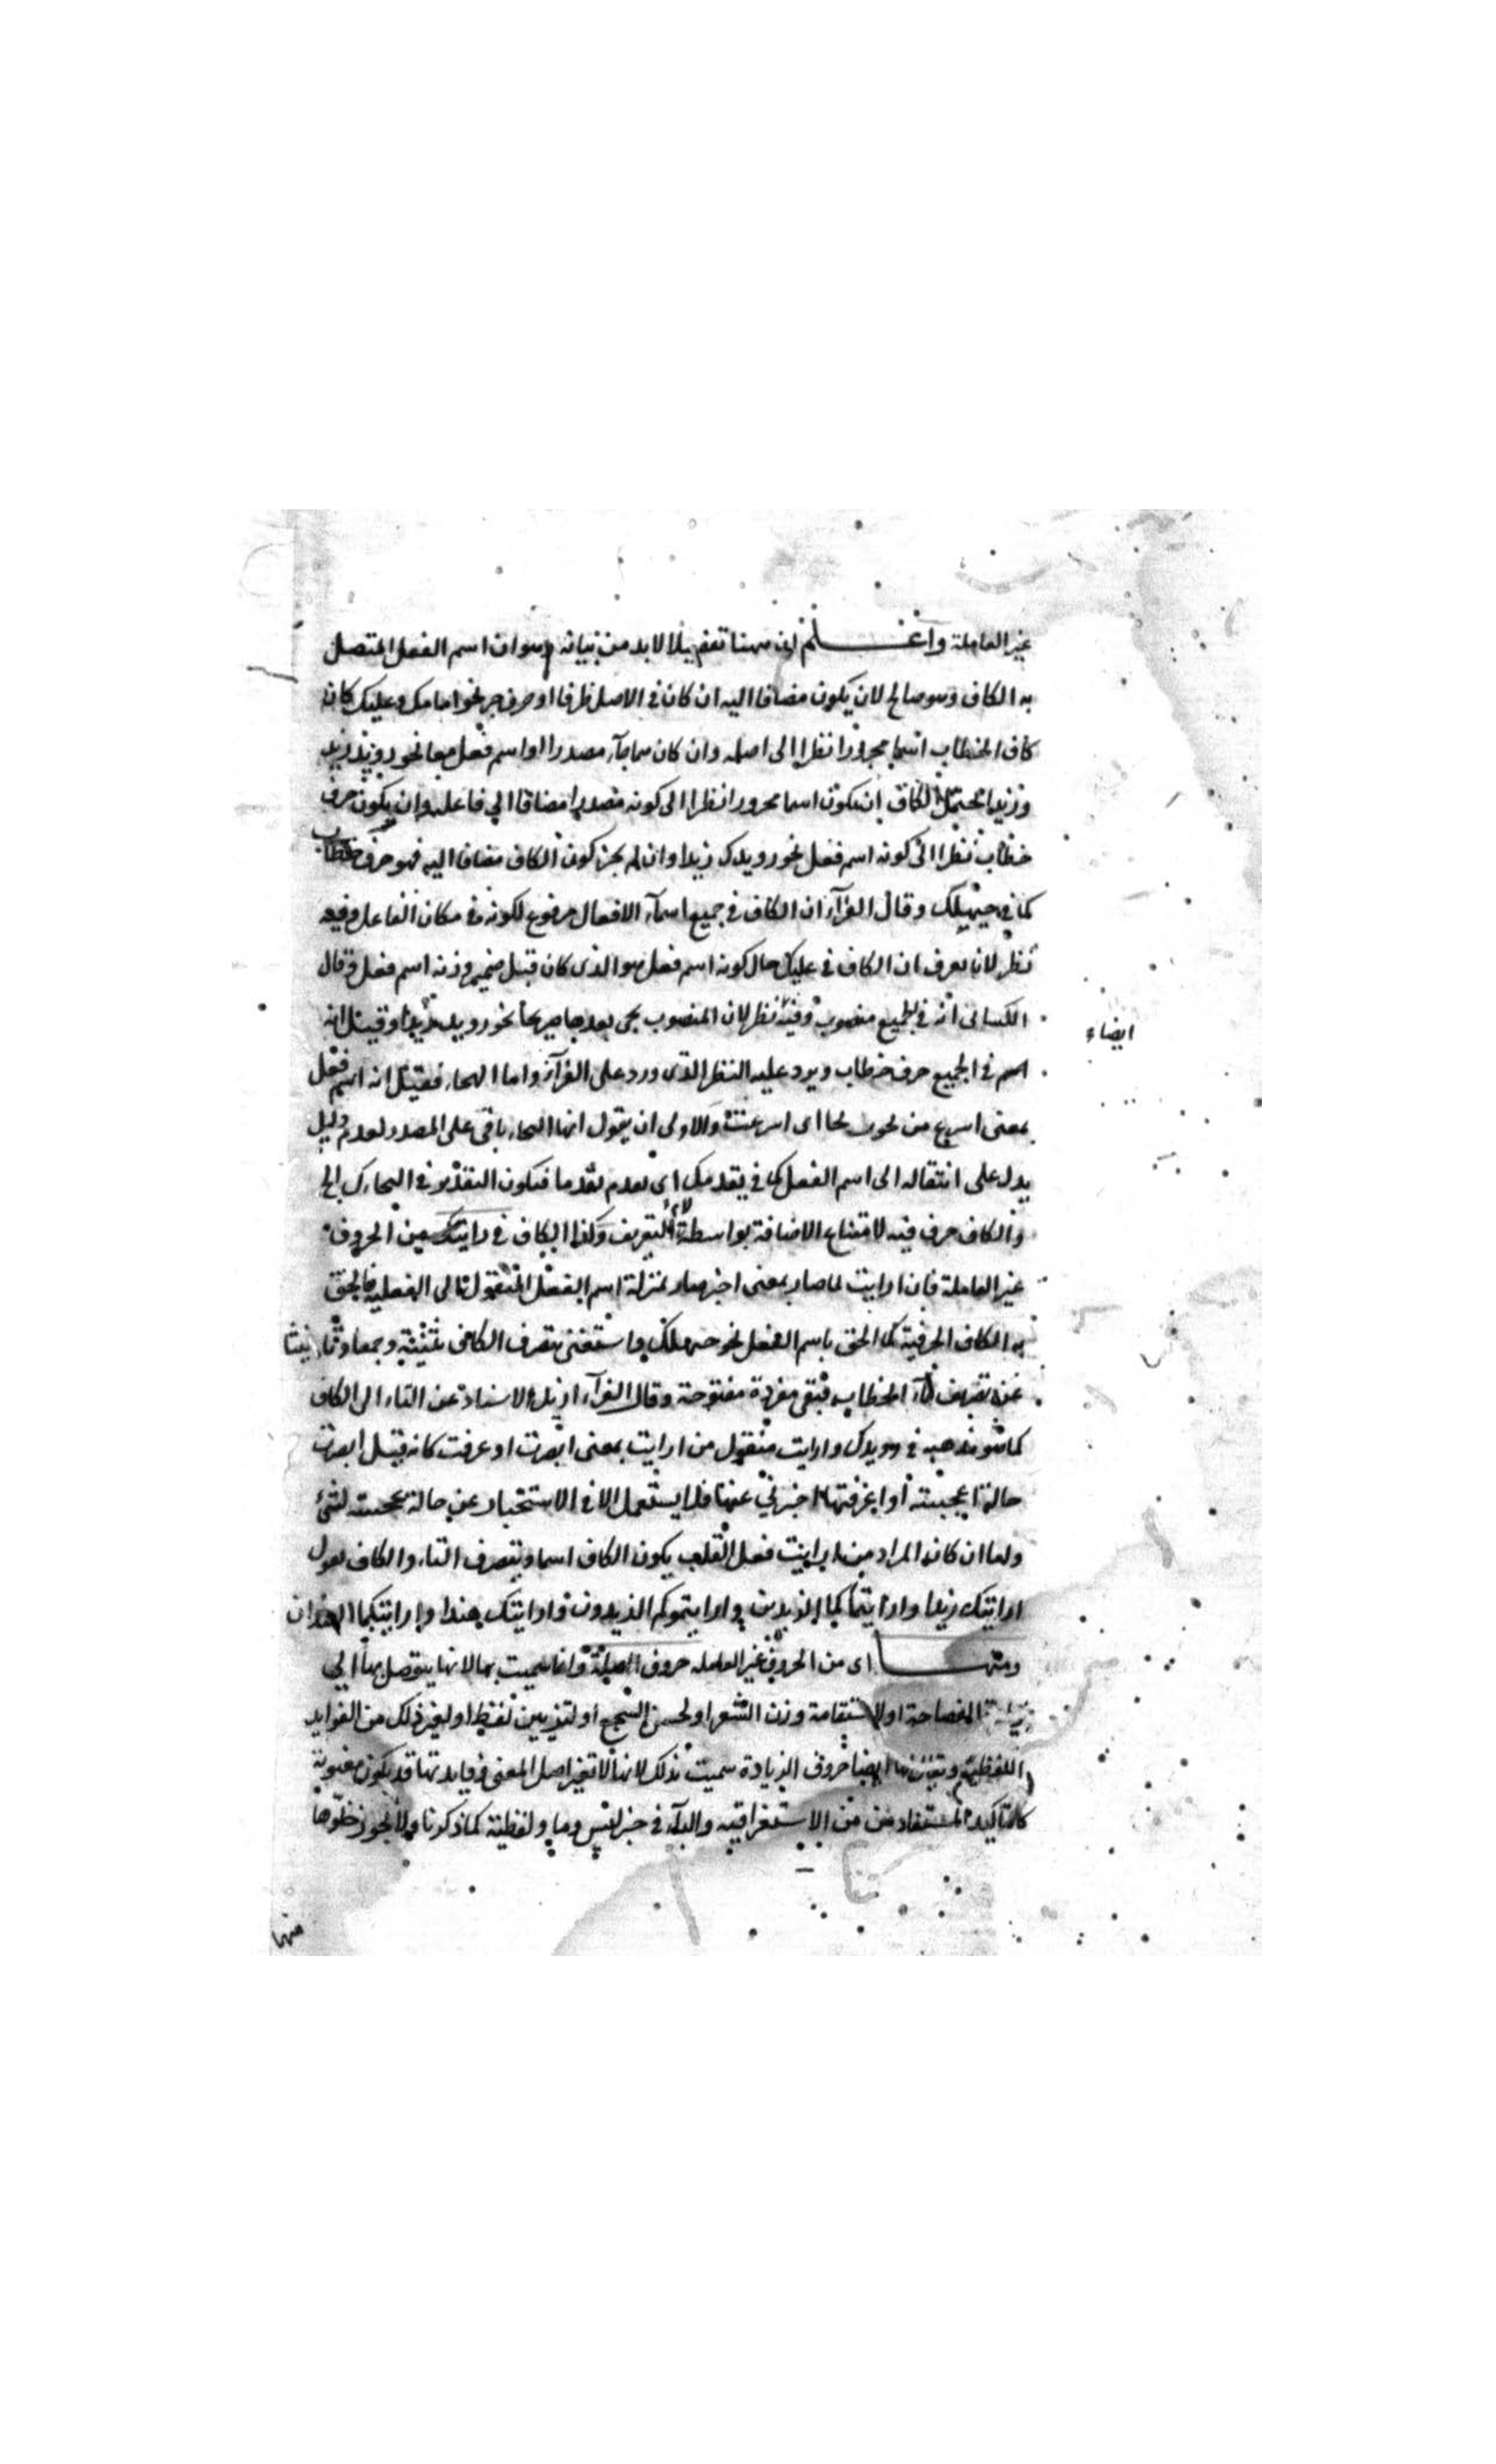 غير العاملة واعلم ان ههنا تفصيلا لابد من بيانه وهو ان اسم الفعل المتصل
به الكاف وهو صالح لان يكون مضافا اليه ان كان في الاصل ظرفا او حرف جر نحو امامك وعليك كان
كاف الخطاب اسما مجرورا نظرا الى اصله وان كان مما جاء مصدرا واسم فعل معا نحو رويد زيد
وزيدا يحتمل الكاف ان يكون اسما مجرورا نظرا الى كونه مصدرا مضافا الى فاعله وان يكون حرف
خطاب نظرا الى كونه اسم فعل نحو رويدك زيدا وان لم يجز كون الكاف مضافا اليه فهو حرف خطاب
كما في حيهلك وقال الفرآء ان الكاف في جميع اسمآء الافعال مرفوع لكونه في مكان الفاعل وفيه
نظر لانا نعرف ان الكاف في عليك حال كونه اسم فعل هو الذي كان قبل اسم فعل وقال
الكسائي انه في الجميع منصوب وفيه نظر لان المنصوب يجي بعدها صريحا نحو رويدك زيدا وقيل انه
ايضاء
اسم في الجميع حرف خطاب ويرد عليه النظر الذي ورد على الفرآء واما النجاء فقيل انه اسم فعل
بمعنى اسرع من نجوت نجا اى اسرعت والاولى ان يقول انها النجاء باقى على المصدر لعدم دليل
يدل على انتقاله الى اسم الفعل كما في تقدمك اى تقدم تقدما فيكون التقدير في النجاءك انج
والكاف حرف فيه لامتناع الاضافة بواسطة لام التعريف وكذا الكاف في رايتك من الحروف
غير العاملة فان ارايت لما صار بمعنى اخبر صار بمنزلة اسم الفعل المنقول الى الفعلية فالحق
به الكاف الحرفية كما الحق باسم الفعل نحو حيهلك واستغنى بتصرف الكاف تثنية وجمعا وتانيثا
عن تصرف تآء الخطاب فبقى مفردة مفتوحة وقال الفرآء ازيل الاسناد عن التاء الى الكاف
كما هو مذهبه في رويدك وارايت منقول من ارايت بمعنى ابصرت او عرفت كانه قيل ابصرت
حالة اعجبته او اعرفتها اخبرني عنها فلا يستعمل الا في الاستخبار عن حالة عجيبة لشئ
واما ان كان المراد من ارايت فعل القلب يكون الكاف اسما ويتصرف التاء والكاف نقول
ارايتك زيدا وارايتما كما الزيدين وارايتموكم الزيدون وارايتك هندا وارايتكما الهندان
ومنها اى من الحروف غير العاملة حروف الصلة وانما سميت بها لانها يتوصل بها الى
زيادة الفصاحة او لاستقامة وزن الشعر او لحسن السجع او لتزيين لفظ او لغير ذلك من الفوايد
اللفظية ويقال لها ايضا حروف الزيادة سميت بذلك لانها لا تغير اصل المعنى وفايدتها قد يكون معنوية
كالتاكيد المستفاد من من الاستغراقية والبآء في خبر ليس وما ولفظية كما ذكرنا ولا يجوز خلوها
منها